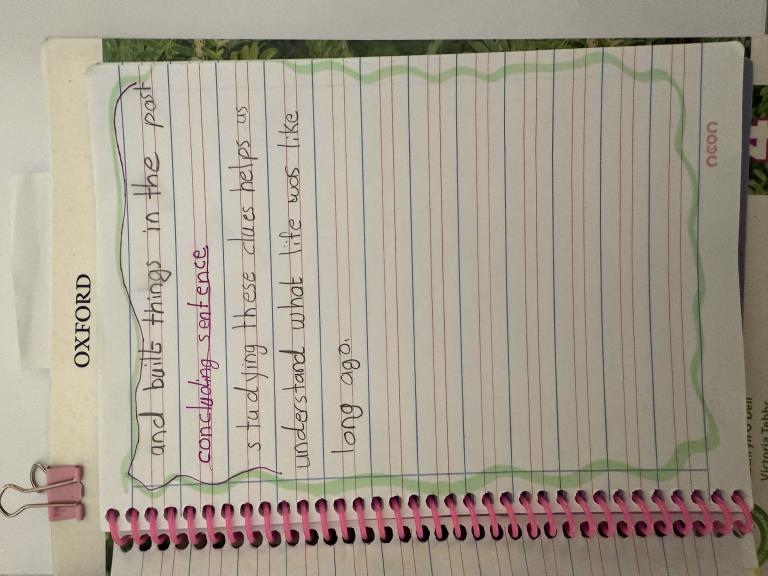 OXFORD
and built things in the past
concluding sentence
studying these clues helps us
understand what life was like
long ago.
neon
Victoria Tebbs